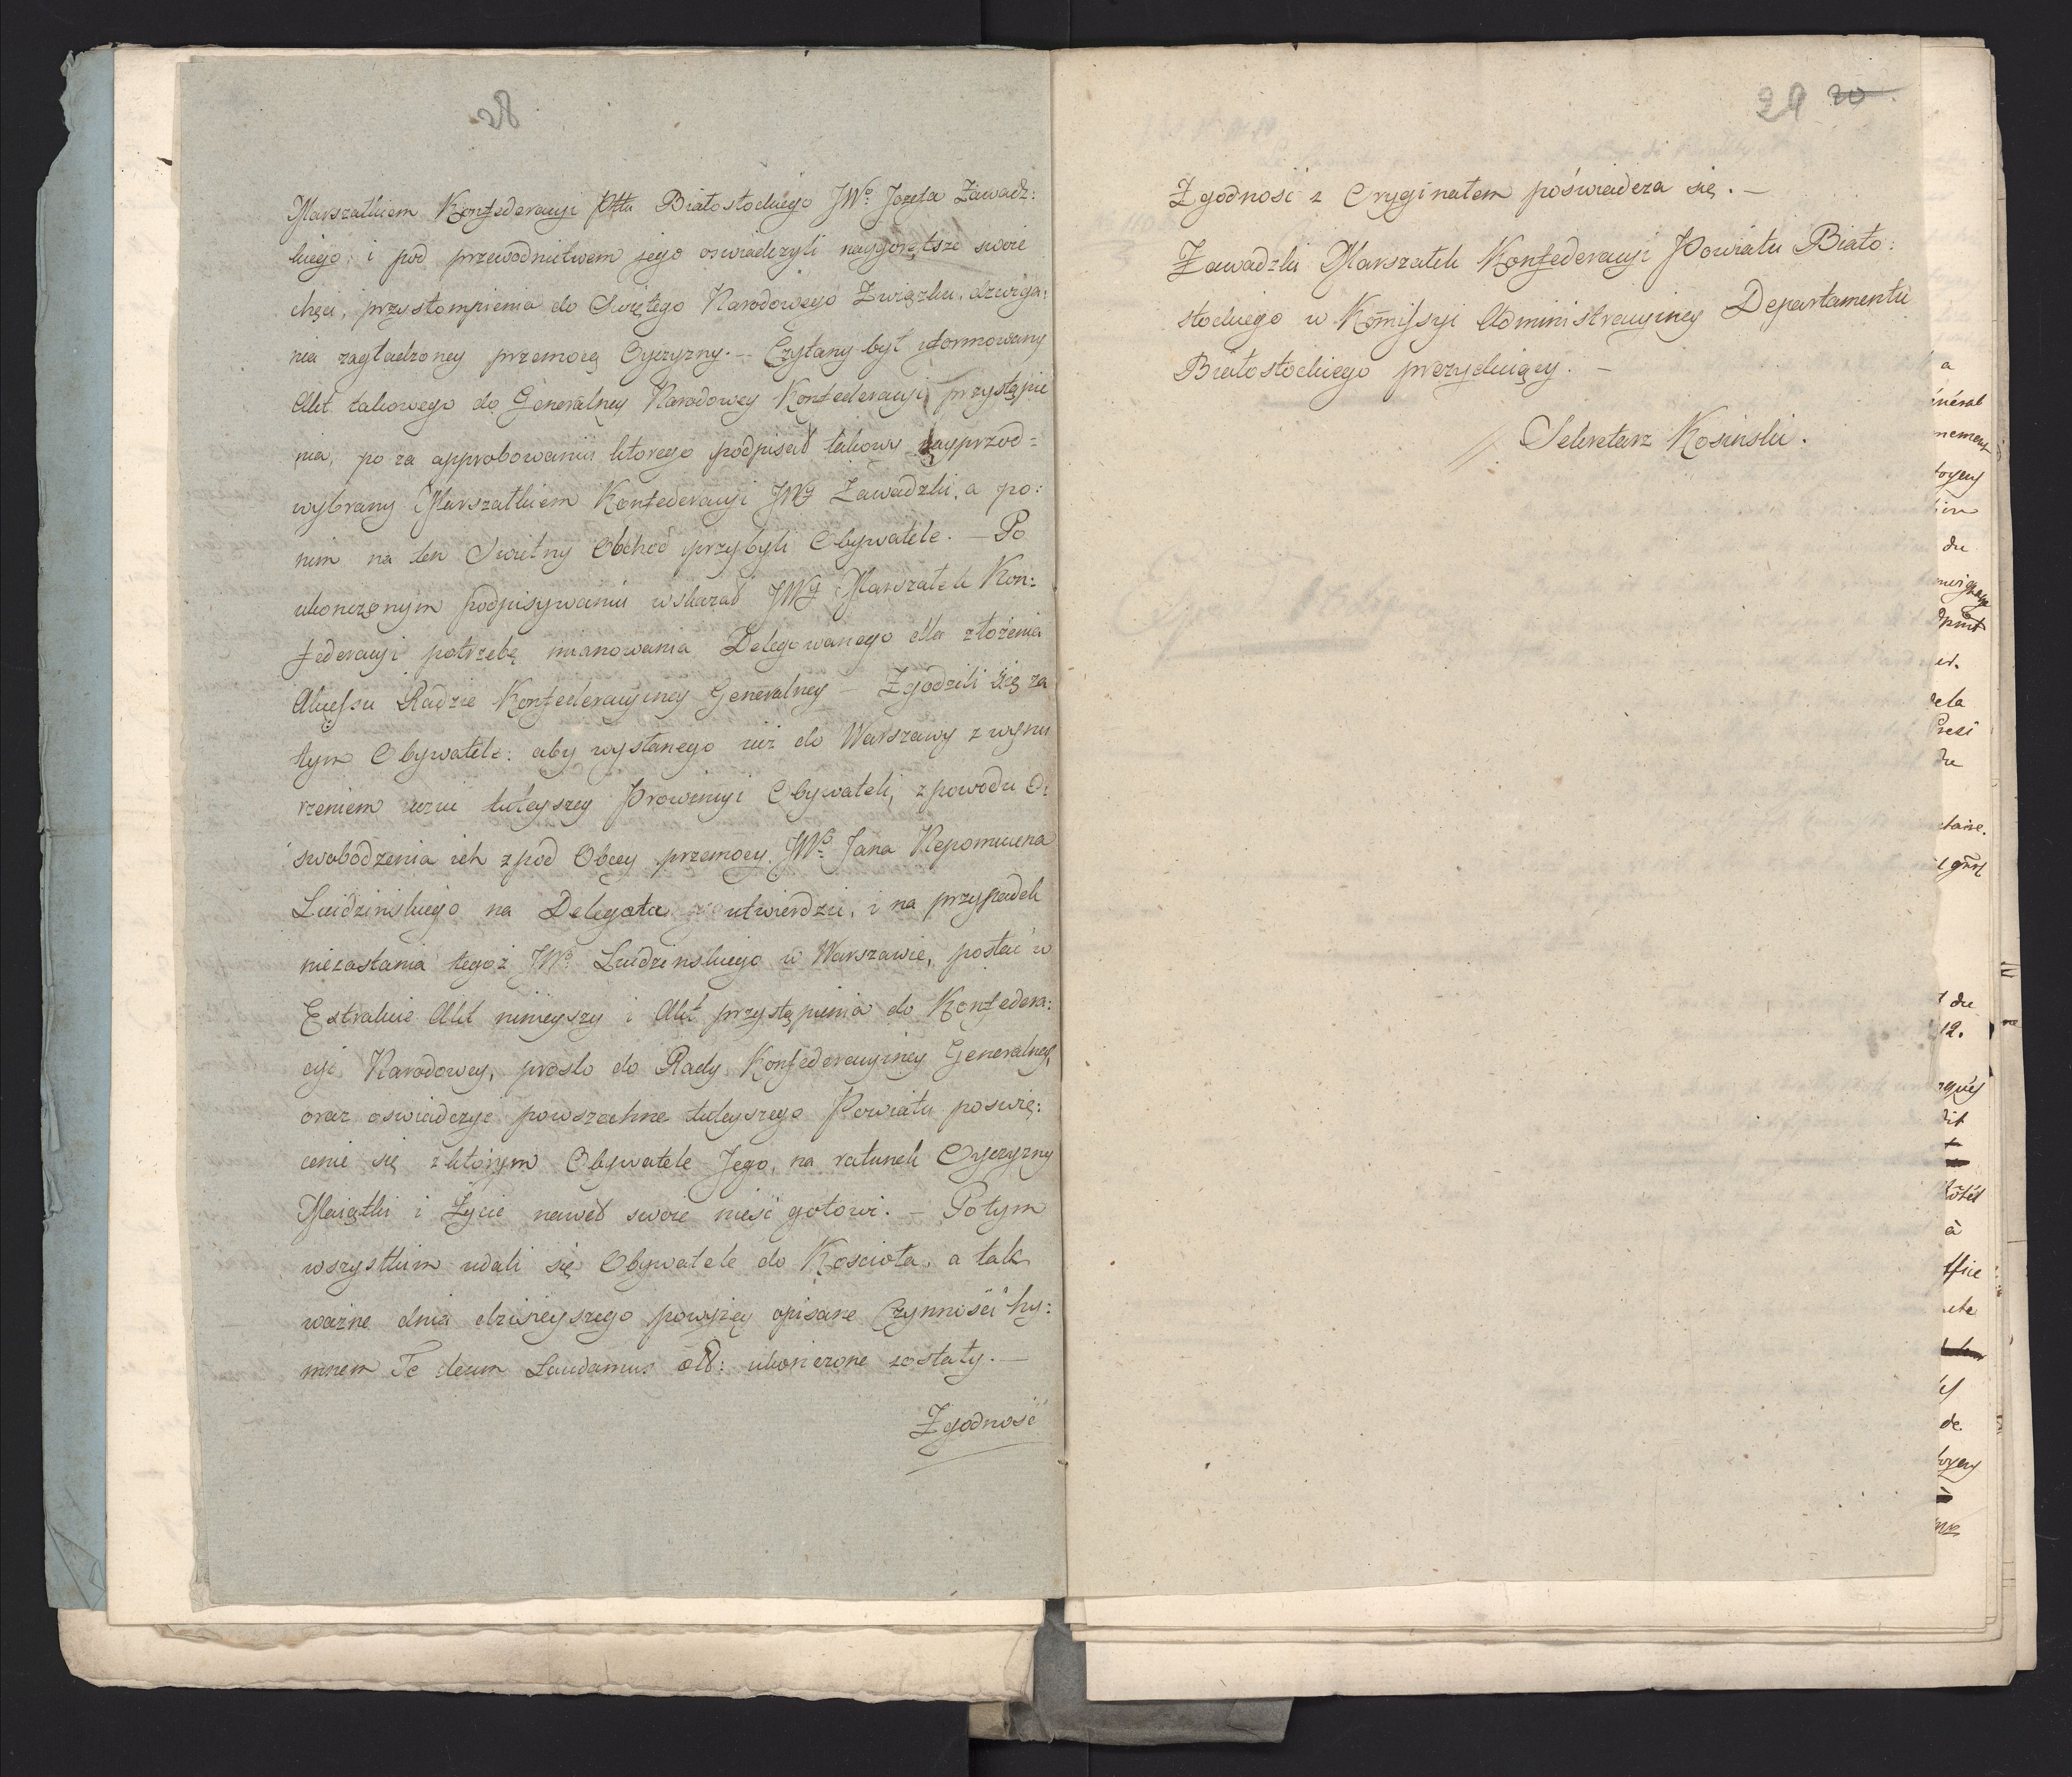 28
Marszałkiem Konfederacyi Pttu Białostockiego JWo Jozefa Zawadz:
kiego: i pod przewodnictwem jego oswiadczyli naygorętsze swoie
chęci, przystompienia do Swiętego Narodowego Związku, dzwiga:
nia zagładzoney przemocą Oyczyzny. — Czytany był uformowany
Akt takowego do Generalney Narodowey Konfederacyi przystąpie
nia, po za approbowaniu ktorego podpisał takowy nayprzod =
wybrany Marszałkiem Konfederacyi JWy Zawadzki, a po:
nim na ten Swietny Obchod przybyli Obywatele. — Po
ukonczonym podpisywaniu wskazał JWy Marszałek Kon:
federacyi potrzebę mianowania Delegowanego dla złożenia
Akcessu Radzie Konfederacyiney Generalney — Zgodzili się za
tym Obywatele: aby wysłanego iuż do Warszawy z wynu
rzeniem uczuc tuteyszey Prowincyi Obywateli, z powodu O:
swobodzenia ich z pod Obcey przemocy. JWo Jana Nepomucena
Luidzinskiego na Delegata utwierdzic, i na przypadek
niezastania tegoż JWo Luidzinskiego w Warszawie, posłać w
Extrakcie Akt ninieyszy i Akt przystąpienia do Konfedera:
cyi Narodowey, prosto do Rady Konfederacyiney Generalney,
oraz oswiadczyć powszechne tuteyszego Powiatu poswię:
cenie się z ktorym Obywatele Jego, na ratunek Oyczyzny
Maiątki i Życie nawet swoie nieść gotowi. — Potym
wszystkim udali się Obywatele do Kościoła, a tak
ważne dnia dzisieyszego powyżey opisane Czynności hy:
mnem Te deum Laudamus ett: ukonczone zostały. —
Zgodność
29 20
Zgodność z Oryginałem poświadcza się. —
Zawadzki Marszałek Konfederacyi Powiatu Biało:
stockiego w Komissyi Administracyiney Departamentu
Białostockiego prezyduiący. —
Sekretarz Kosinski.